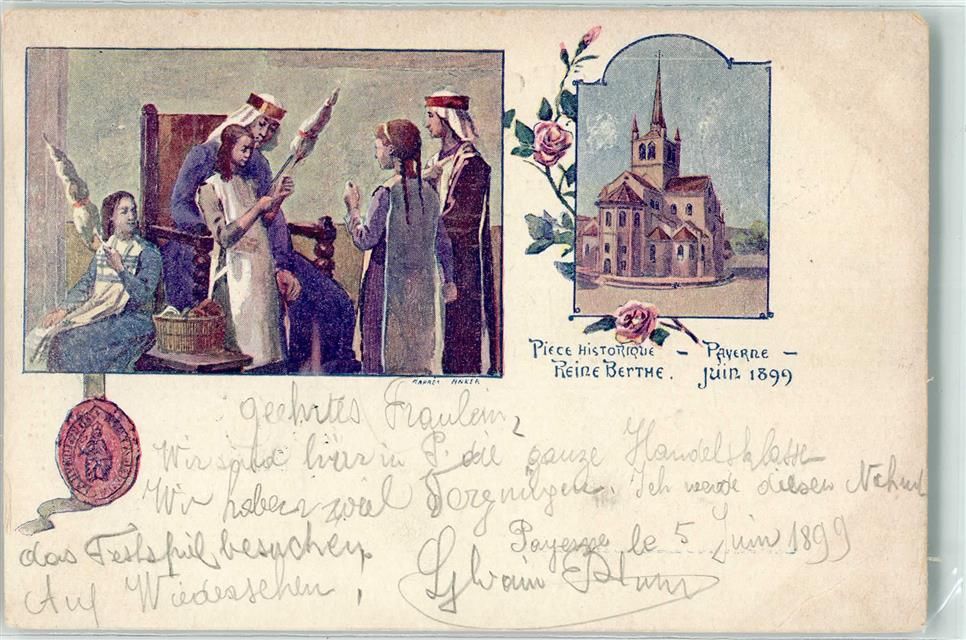 PIECE HISTORIQUE – PAYERNE –
REINE BERTHE. JUIN 1899
D'APRÈS ANKER
geehrtes Fräulein,
Wir sind hier in P. die ganze Handelsklasse
Wir haben viel Vergnügen. Ich werde diesen Nachmit
das Festspiel besuchen.
Payerne le 5 Juin 1899
Auf Wiedersehen, Sylvain Blum